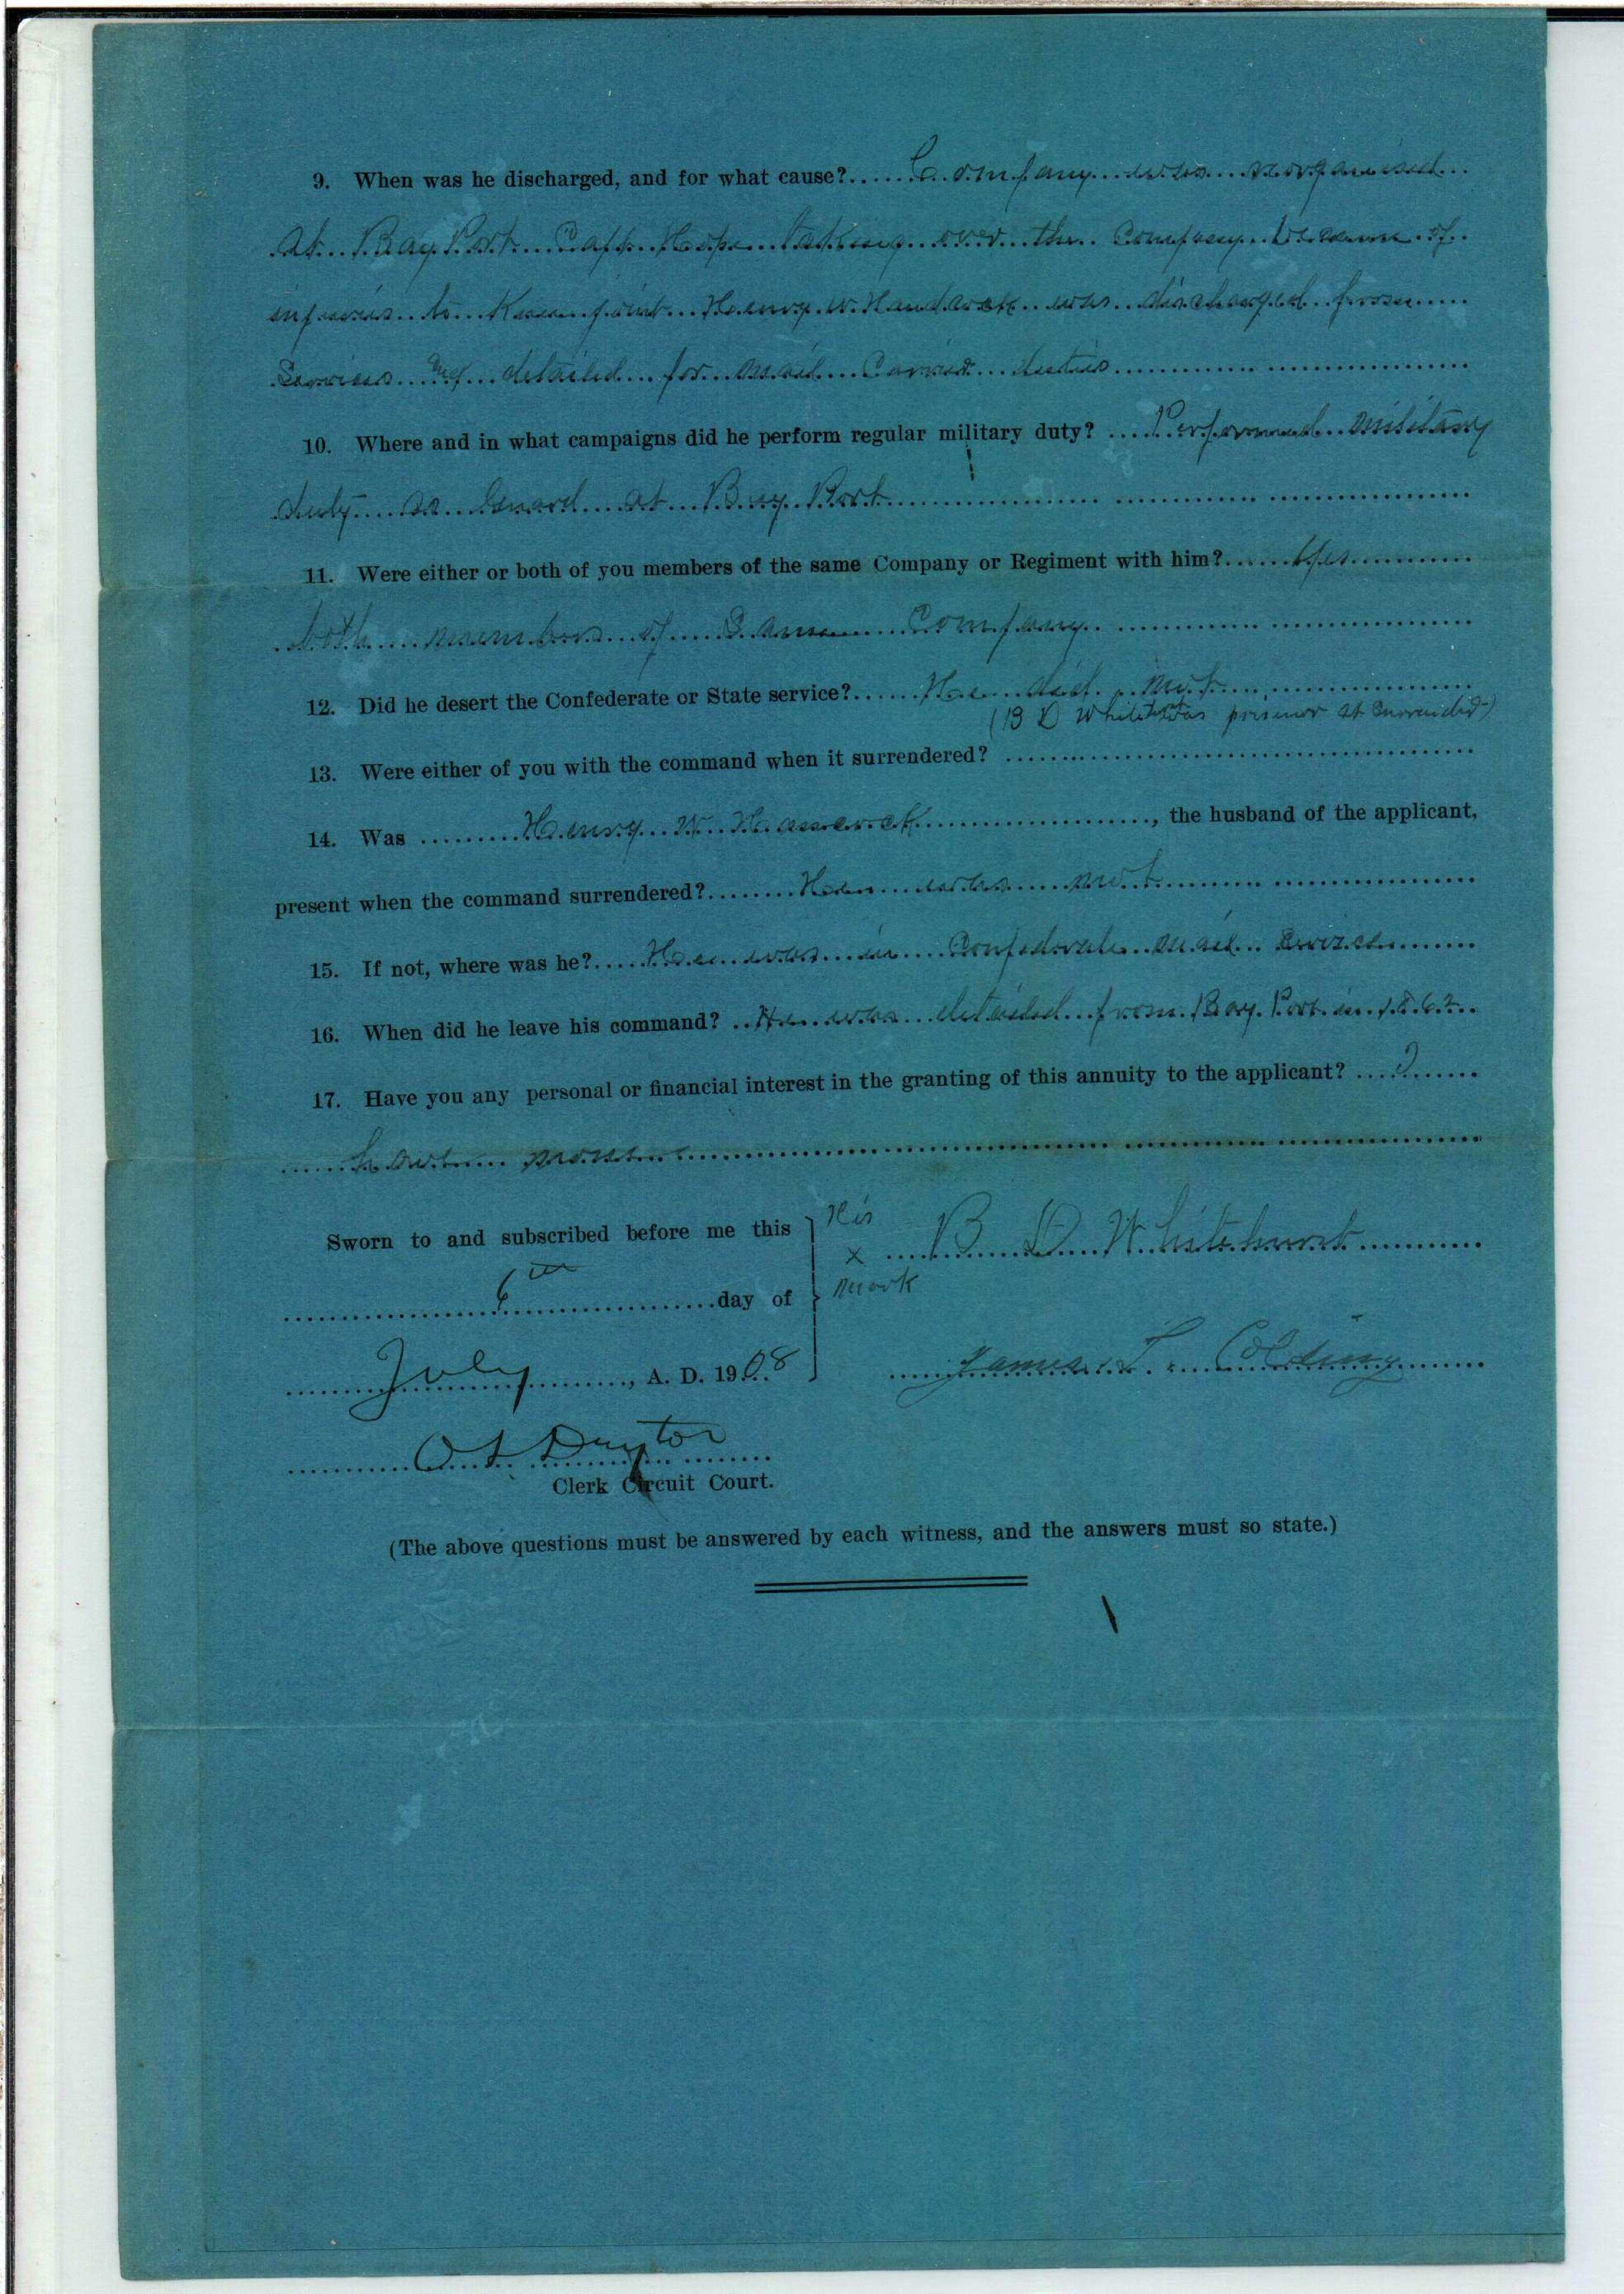 9. When was he discharged, and for what cause? Company was reorganised
at Bay Port Capt Hope taking over the Company because of
injuries to Knee joint Henry W Hancock was discharged from
Services and detailed for mail Carrier duties
10. Where and in what campaigns did he perform regular military duty? Performed military
duty as Guard at Bay Port
11. Were either or both of you members of the same Company or Regiment with him? Yes
both members of Same Company
12. Did he desert the Confederate or State service? He did not
(B D Whitehurst was prisoner at Surrender)
13. Were either of you with the command when it surrendered?
14. Was Henry W Hancock, the husband of the applicant,
present when the command surrendered? He was not
15. If not, where was he? He was in Confederate mail Service
16. When did he leave his command? He was detailed from Bay Port in 1862
17. Have you any personal or financial interest in the granting of this annuity to the applicant? I
have none
Sworn to and subscribed before me this
6th day of
July, A. D. 1908
His
x B D Whitehurst
mark
James T. Colding
Clerk Circuit Court.
(The above questions must be answered by each witness, and the answers must so state.)